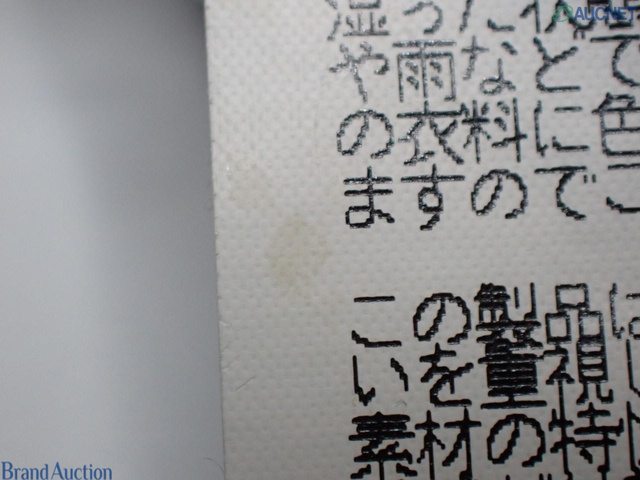 AUCNET
湿った
や雨などで
の衣料に色
ますのでこ
この製品は
いを重視し
素材の特
Brand Auction